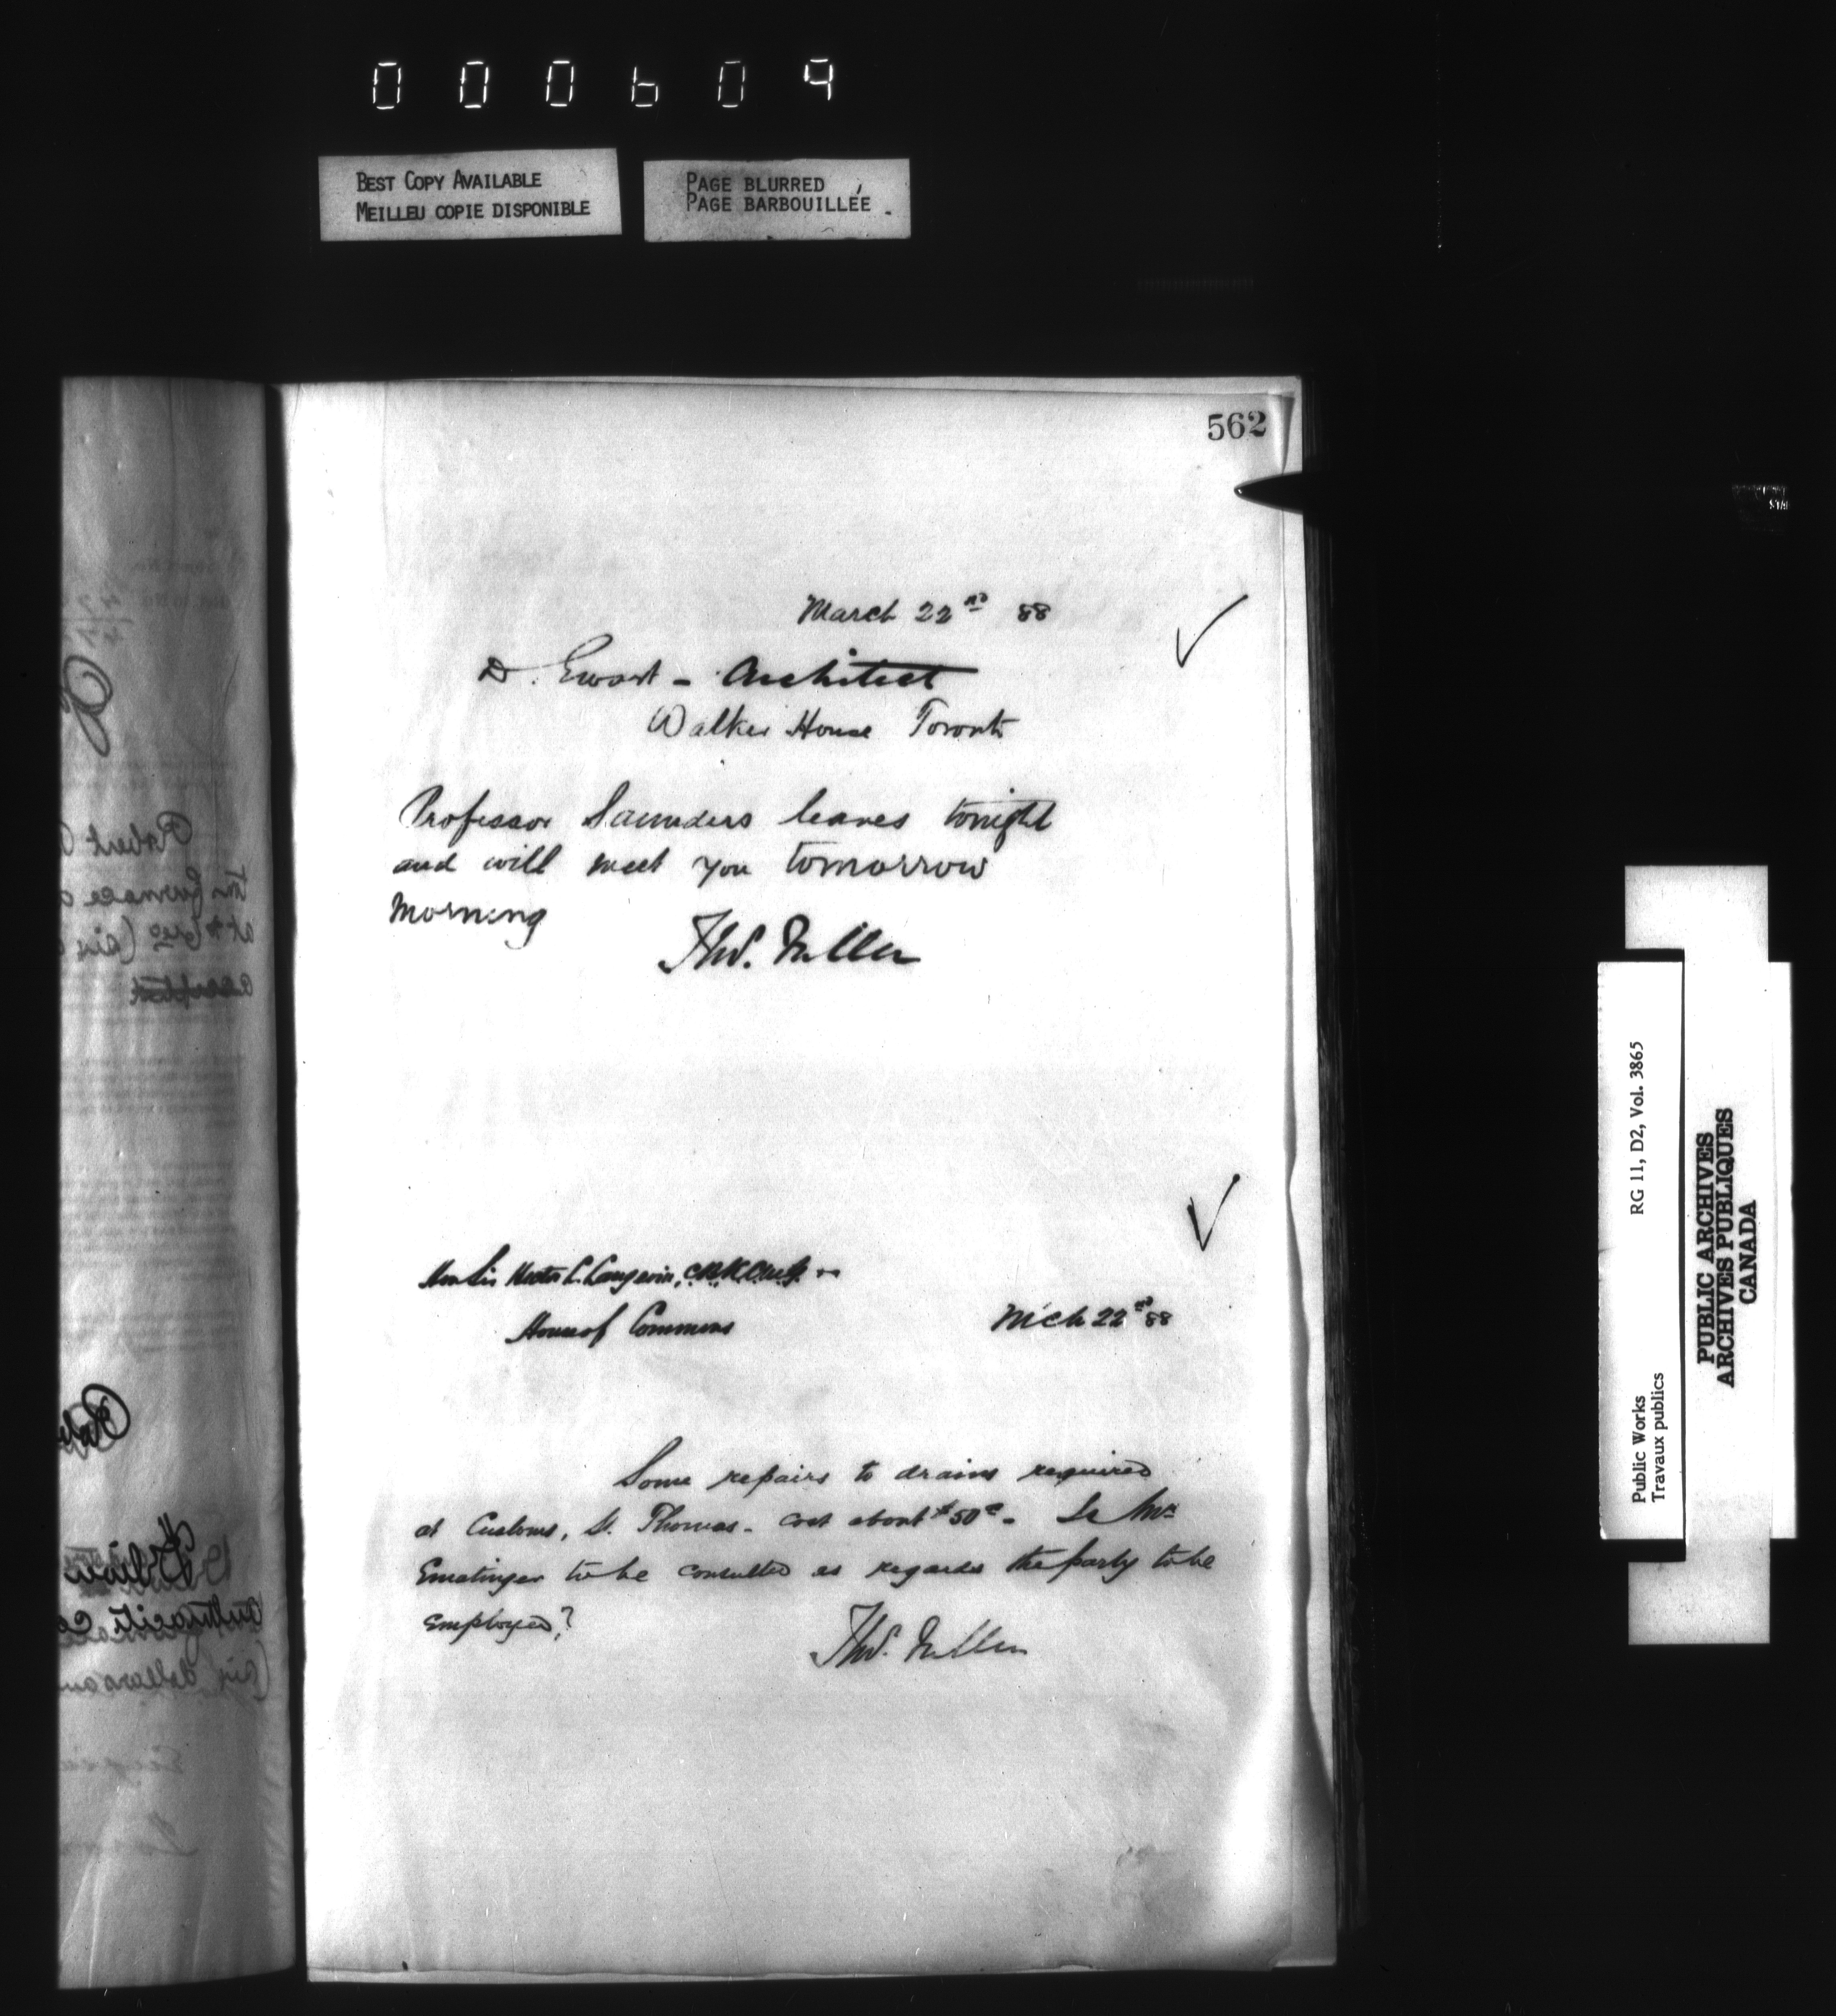 000609
BEST COPY AVAILABLE
MEILLEU COPIE DISPONIBLE
PAGE BLURRED
PAGE BARBOUILLÉE
562
March 22nd 88
D. Ewart - Architect
Walker House Toronto
Professor Saunders leaves tonight
and will meet you tomorrow
morning
Thos. Fuller
Hon Sir Hector L. Langevin, C.B., K.C.M.G.
House of Commons
Mch 22nd 88
Some repairs to drains required
at Customs, St. Thomas - cost about $50 - Is Mr
Ermatinger to be consulted as regards the party to be
employed?
Thos. Fuller
RG 11, D2, Vol. 3865
Public Works
Travaux publics
PUBLIC ARCHIVES
ARCHIVES PUBLIQUES
CANADA